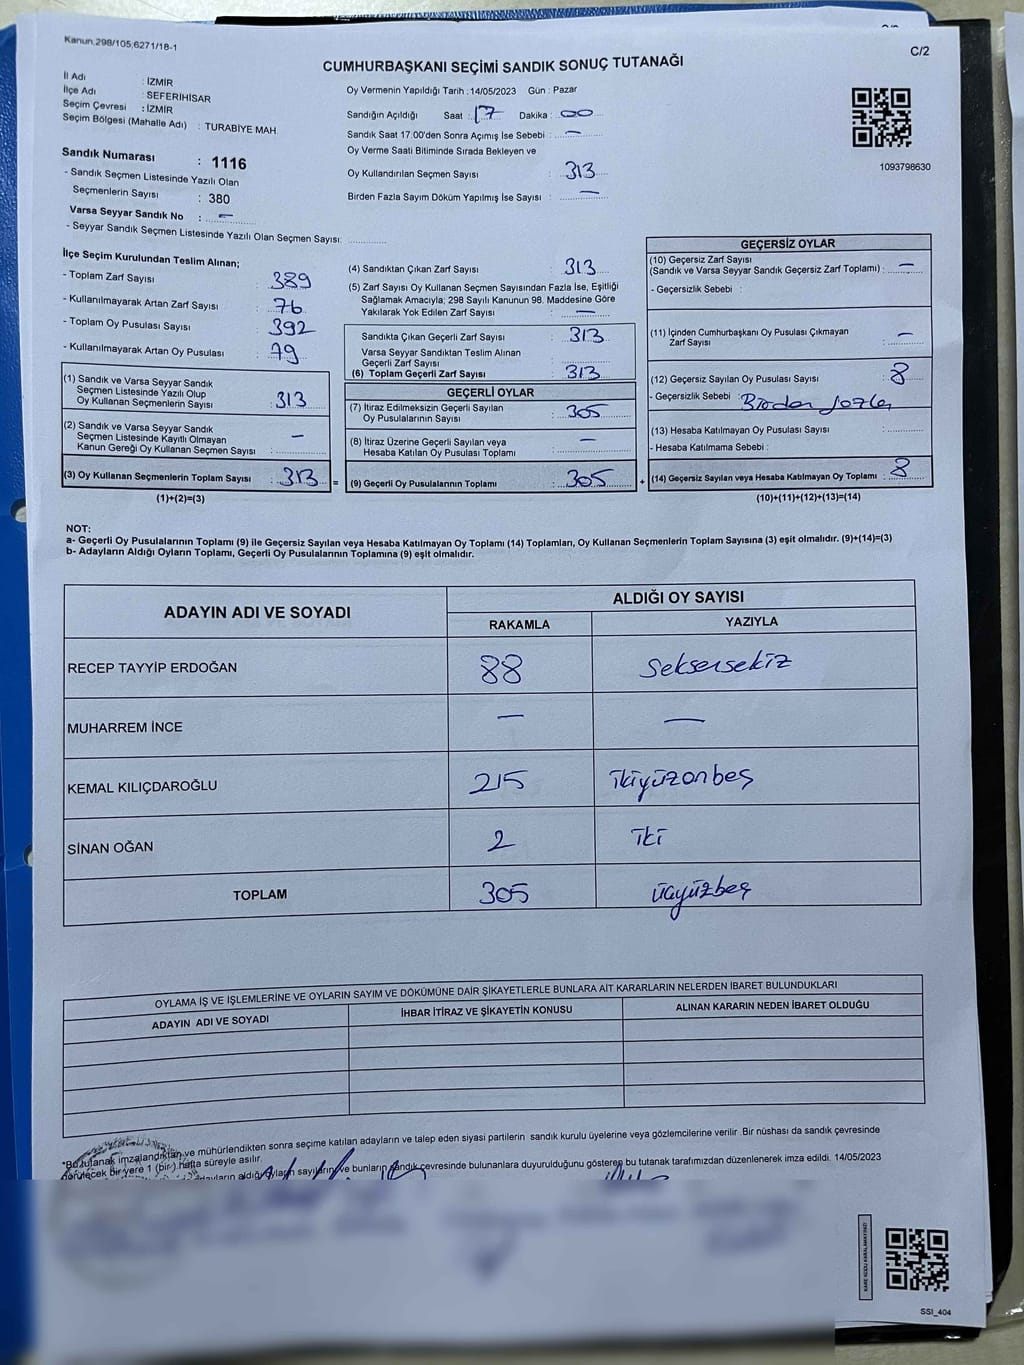 Kanun.298/105;6271/18-1
C/2
CUMHURBAŞKANI SEÇİMİ SANDIK SONUÇ TUTANAĞI
İl Adı : İZMİR
İlçe Adı : SEFERİHİSAR
Seçim Çevresi : İZMİR
Seçim Bölgesi (Mahalle Adı) : TURABİYE MAH.
Sandık Numarası : 1116
- Sandık Seçmen Listesinde Yazılı Olan
Seçmenlerin Sayısı : 380
Varsa Seyyar Sandık No : –
- Seyyar Sandık Seçmen Listesinde Yazılı Olan Seçmen Sayısı:
Oy Vermenin Yapıldığı Tarih :14/05/2023 Gün : Pazar
Sandığın Açıldığı Saat : 17 Dakika : 00
Sandık Saat 17:00'den Sonra Açımış İse Sebebi : –
Oy Verme Saati Bitiminde Sırada Bekleyen ve
Oy Kullandırılan Seçmen Sayısı : 313
Birden Fazla Sayım Döküm Yapılmış İse Sayısı : –
1093798630
İlçe Seçim Kurulundan Teslim Alınan;
- Toplam Zarf Sayısı : 389
- Kullanılmayarak Artan Zarf Sayısı : 76
- Toplam Oy Pusulası Sayısı : 392
- Kullanılmayarak Artan Oy Pusulası : 79
(1) Sandık ve Varsa Seyyar Sandık
Seçmen Listesinde Yazılı Olup
Oy Kullanan Seçmenlerin Sayısı : 313
(2) Sandık ve Varsa Seyyar Sandık
Seçmen Listesinde Kayıtlı Olmayan
Kanun Gereği Oy Kullanan Seçmen Sayısı : –
(3) Oy Kullanan Seçmenlerin Toplam Sayısı : 313 =
(1)+(2)=(3)
(4) Sandıktan Çıkan Zarf Sayısı : 313
(5) Zarf Sayısı Oy Kullanan Seçmen Sayısından Fazla İse, Eşitliği
Sağlamak Amacıyla; 298 Sayılı Kanunun 98. Maddesine Göre
Yakılarak Yok Edilen Zarf Sayısı : –
Sandıkta Çıkan Geçerli Zarf Sayısı : 313
Varsa Seyyar Sandıktan Teslim Alınan
Geçerli Zarf Sayısı :
(6) Toplam Geçerli Zarf Sayısı : 313
GEÇERLİ OYLAR
(7) İtiraz Edilmeksizin Geçerli Sayılan
Oy Pusulalarının Sayısı : 305
(8) İtiraz Üzerine Geçerli Sayılan veya
Hesaba Katılan Oy Pusulası Toplamı : –
(9) Geçerli Oy Pusulalarının Toplamı : 305 +
GEÇERSİZ OYLAR
(10) Geçersiz Zarf Sayısı
(Sandık ve Varsa Seyyar Sandık Geçersiz Zarf Toplamı) : –
- Geçersizlik Sebebi :
(11) İçinden Cumhurbaşkanı Oy Pusulası Çıkmayan
Zarf Sayısı : –
(12) Geçersiz Sayılan Oy Pusulası Sayısı : 8
- Geçersizlik Sebebi :
(13) Hesaba Katılmayan Oy Pusulası Sayısı :
- Hesaba Katılmama Sebebi :
(14) Geçersiz Sayılan veya Hesaba Katılmayan Oy Toplamı : 8
(10)+(11)+(12)+(13)=(14)
NOT:
a- Geçerli Oy Pusulalarının Toplamı (9) ile Geçersiz Sayılan veya Hesaba Katılmayan Oy Toplamı (14) Toplamları, Oy Kullanan Seçmenlerin Toplam Sayısına (3) eşit olmalıdır. (9)+(14)=(3)
b- Adayların Aldığı Oyların Toplamı, Geçerli Oy Pusulalarının Toplamına (9) eşit olmalıdır.
ADAYIN ADI VE SOYADI
ALDIĞI OY SAYISI
RAKAMLA YAZIYLA
RECEP TAYYİP ERDOĞAN 88 Seksensekiz
MUHARREM İNCE – –
KEMAL KILIÇDAROĞLU 215 ikiyüzonbeş
SİNAN OĞAN 2 iki
TOPLAM 305 üçyüzbeş
OYLAMA İŞ VE İŞLEMLERİNE VE OYLARIN SAYIM VE DÖKÜMÜNE DAİR ŞİKAYETLERLE BUNLARA AİT KARARLARIN NELERDEN İBARET BULUNDUKLARI
ADAYIN ADI VE SOYADI İHBAR İTİRAZ VE ŞİKAYETİN KONUSU ALINAN KARARIN NEDEN İBARET OLDUĞU
*Bu tutanak imzalandıktan ve mühürlendikten sonra seçime katılan adayların ve talep eden siyasi partilerin sandık kurulu üyelerine veya gözlemcilerine verilir. Bir nüshası da sandık çevresinde
görülecek bir yere 1 (bir) hafta süreyle asılır.
aldığı oyların sayılarını ve bunların sandık çevresinde bulunanlara duyurulduğunu gösteren bu tutanak tarafımızdan düzenlenerek imza edildi. 14/05/2023
KARE KODU KARALAMAYINIZ!
SSI_404